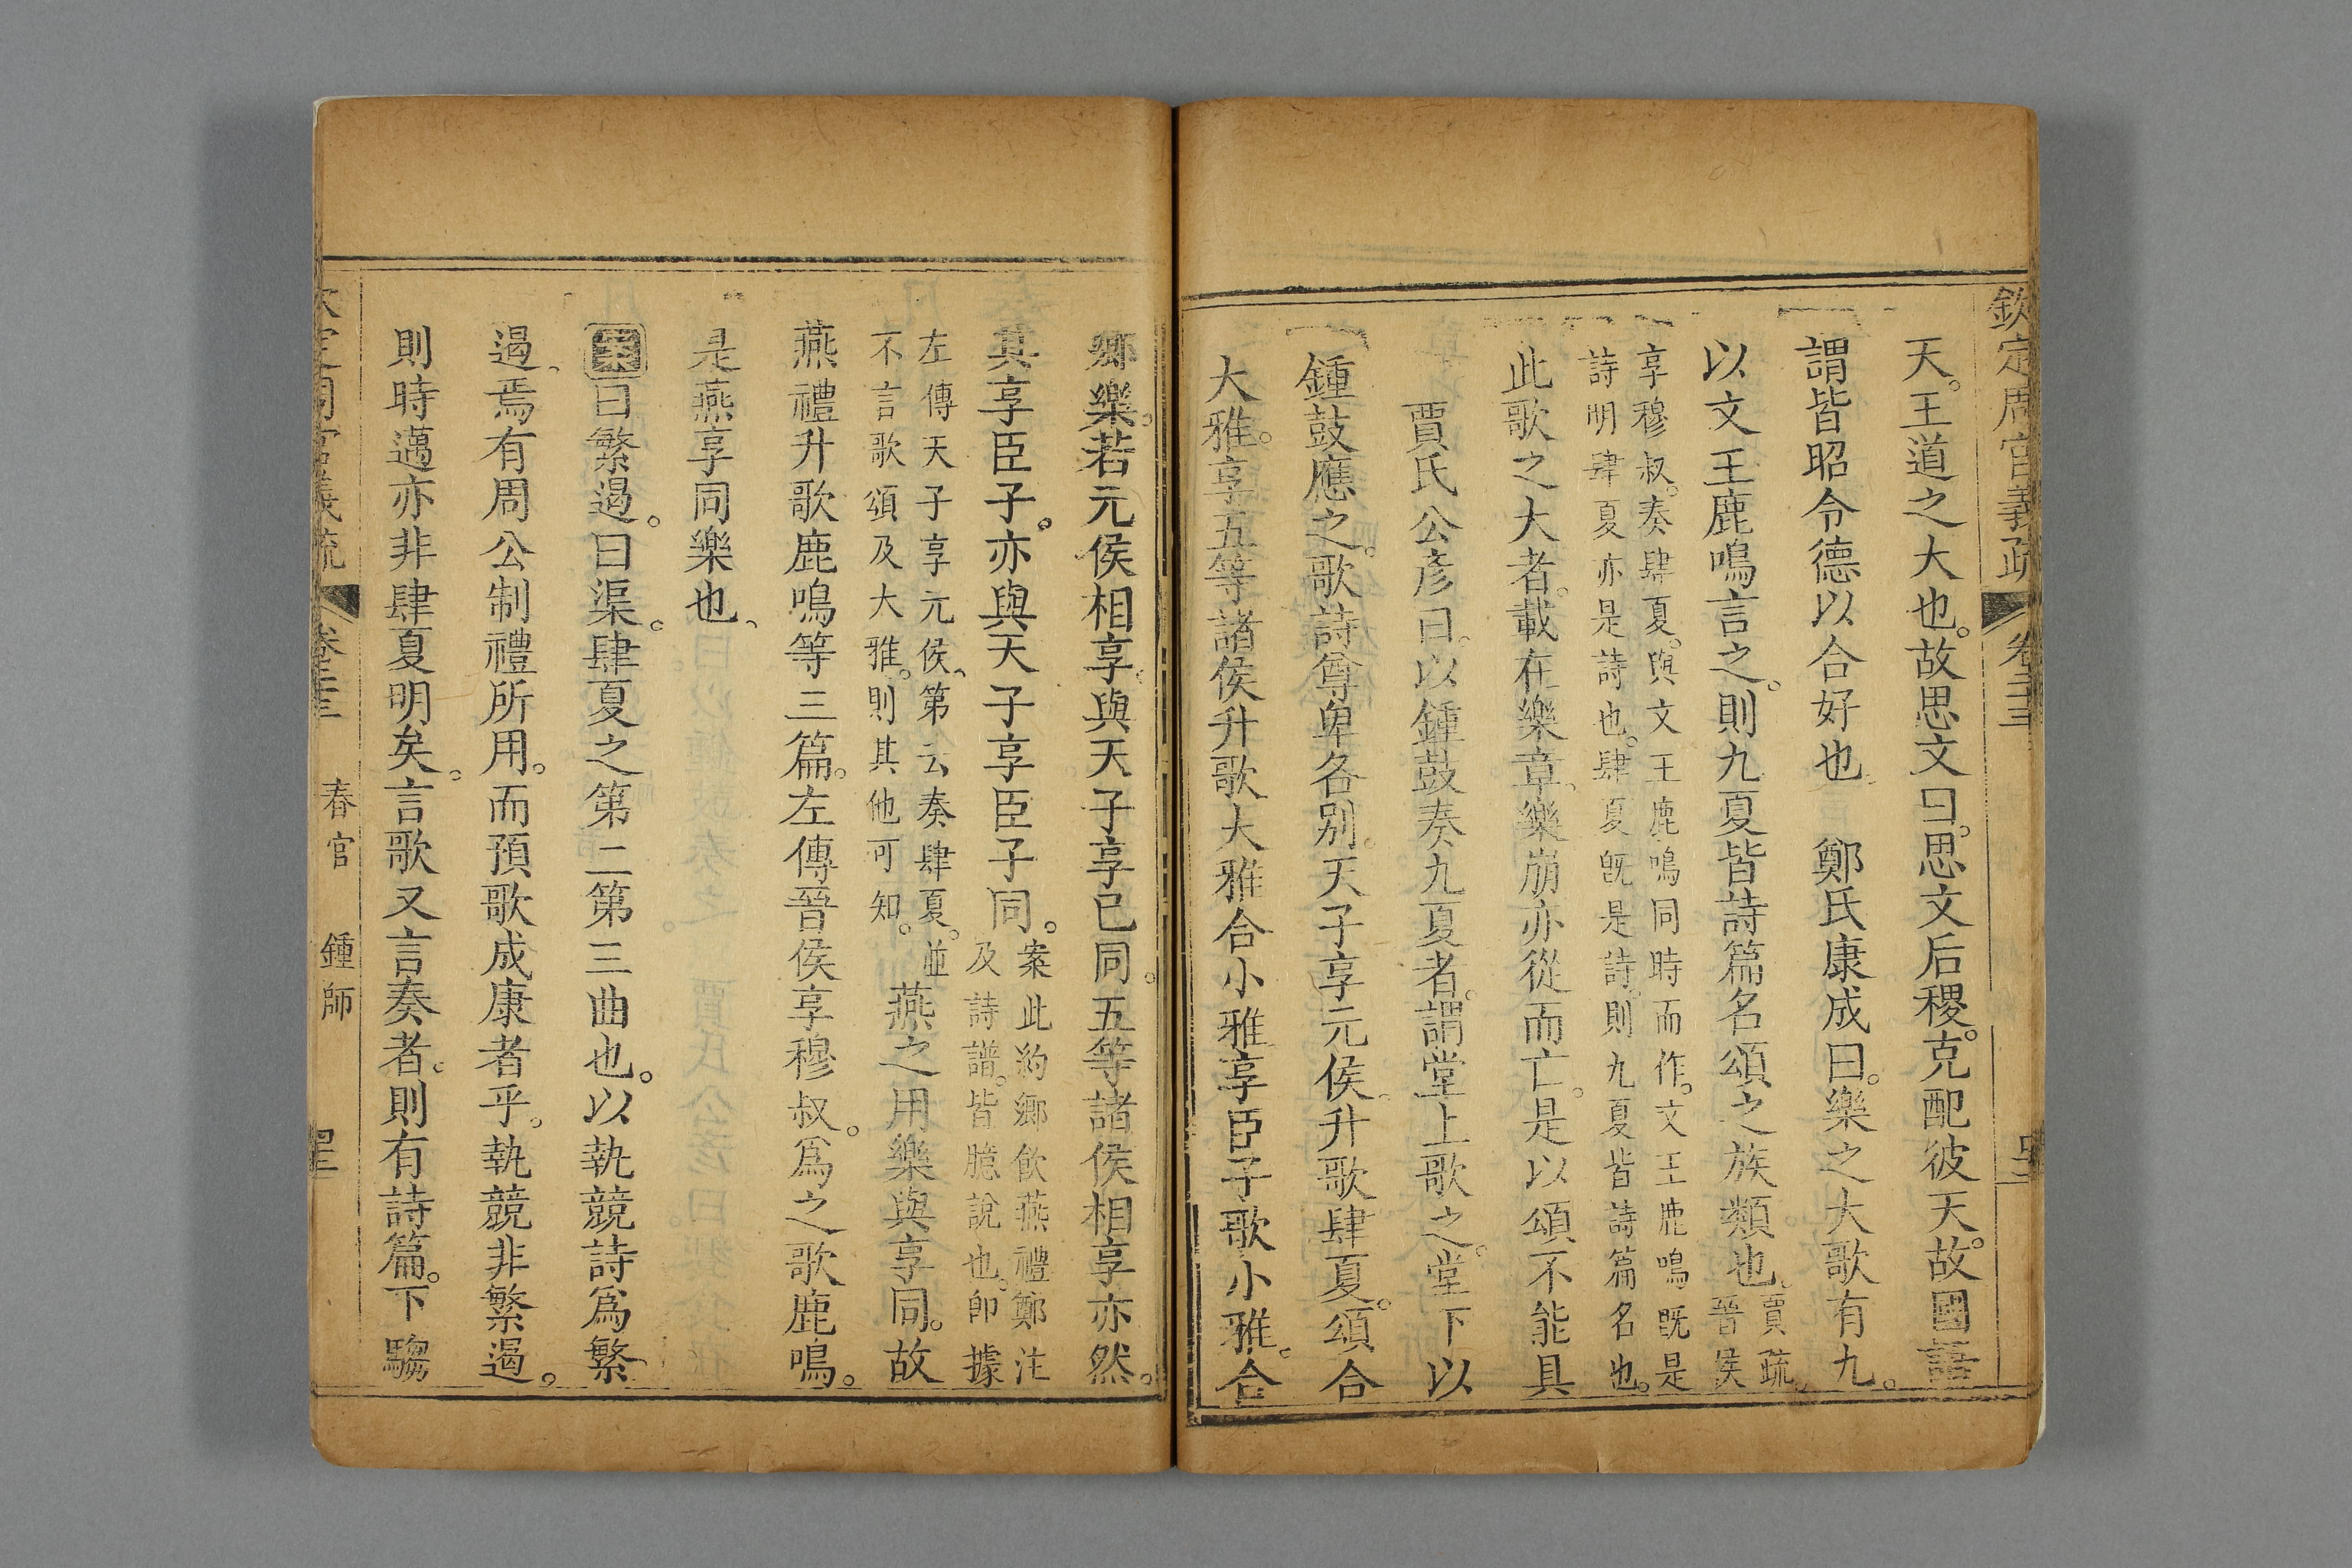 欽定周官義疏 卷二十三
天。王道之大也。故思文曰。思文后稷。克配彼天。故國語
謂皆昭令德以合好也 鄭氏康成曰。樂之大歌有九。
以文王鹿鳴言之。則九夏皆詩篇名頌之族類也。賈疏。晉侯
享穆叔。奏肆夏。與文王鹿鳴同時而作。文王鹿鳴旣是
詩明肆夏亦是詩也。肆夏旣是詩。則九夏皆詩篇名也。
此歌之大者。載在樂章。樂崩亦從而亡。是以頌不能具
賈氏公彥曰。以鍾鼓奏九夏者。謂堂上歌之。堂下以
鍾鼓應之。歌詩尊卑各別。天子享元侯。升歌肆夏。頌合
大雅。享五等諸侯升歌大雅合小雅享臣子歌小雅。合
鄉樂。若元侯相享。與天子享已同。五等諸侯相享亦然。
其享臣子。亦與天子享臣子同。案此約鄉飲燕禮鄭注
及詩譜。皆臆說也。卽據
左傳天子享元侯、第云奏肆夏。並
不言歌頌及大雅。則其他可知。燕之用樂與享同。故
燕禮升歌鹿鳴等三篇。左傳晉侯享穆叔。爲之歌鹿鳴。
是燕享同樂也、
案曰繁遏。曰渠。肆夏之第二第三曲也。以執競詩爲繁
遏、焉有周公制禮所用。而預歌成康者乎。執競非繁遏。
則時邁亦非肆夏明矣。言歌又言奏者。則有詩篇。下騶
春官 鍾師